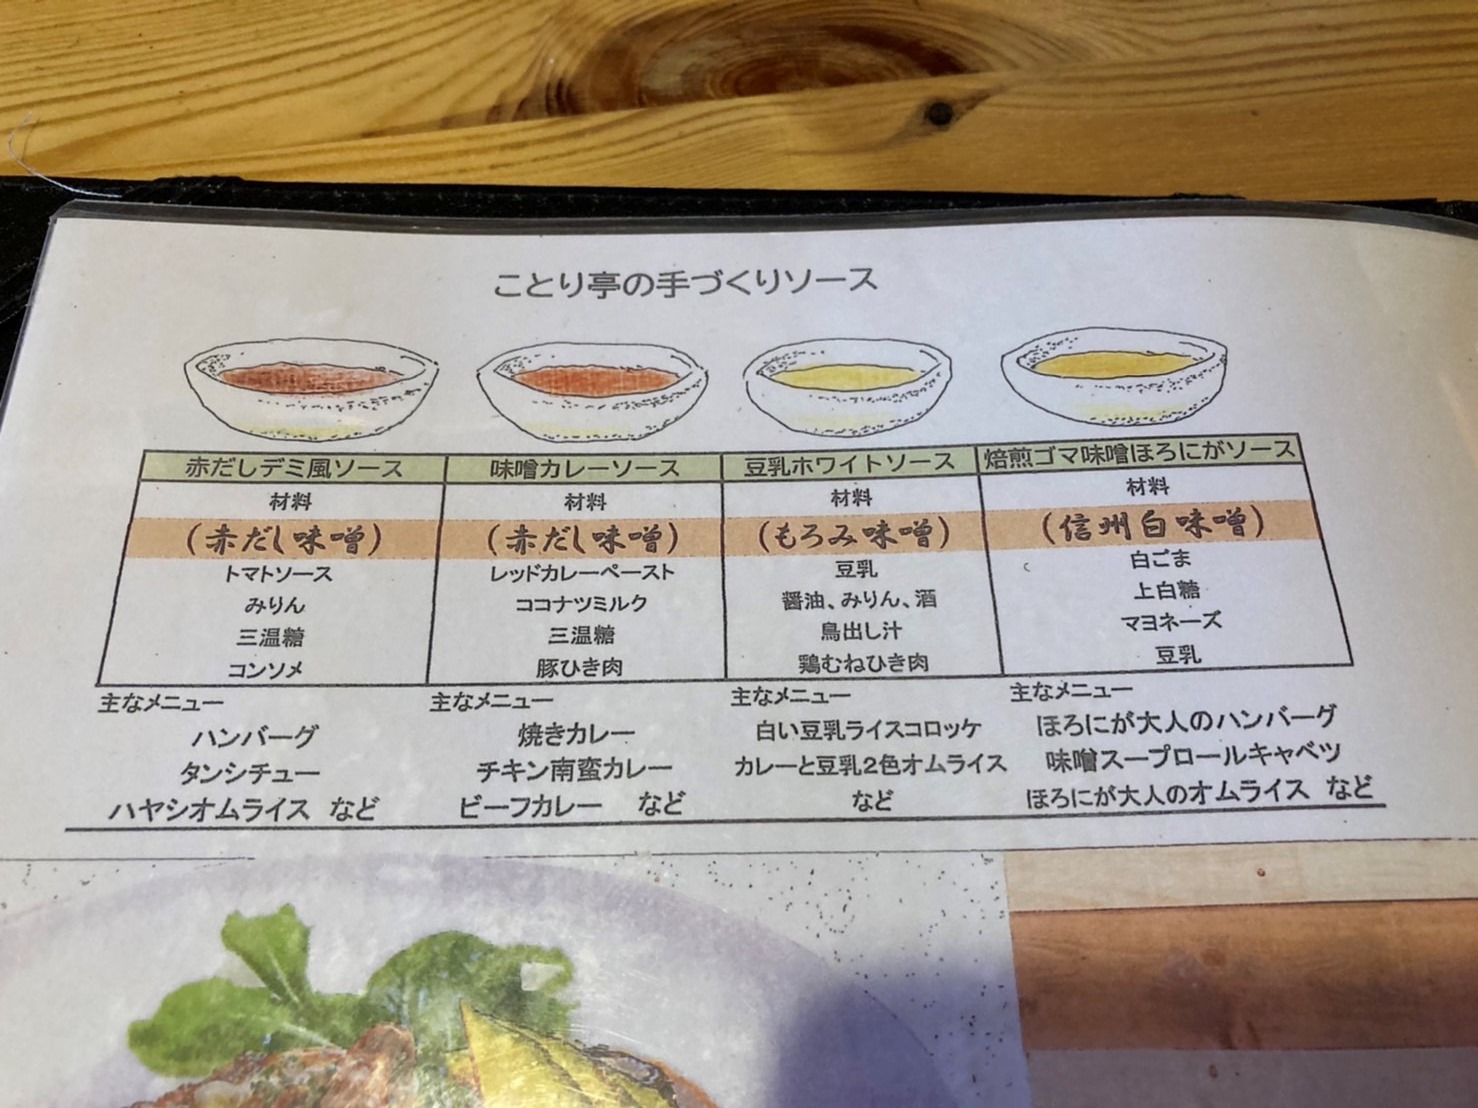 ことり亭の手づくりソース
赤だしデミ風ソース 味噌カレーソース 豆乳ホワイトソース 焙煎ゴマ味噌ほろにがソース
材料 材料 材料 材料
(赤だし味噌) (赤だし味噌) (もろみ味噌) (信州白味噌)
トマトソース レッドカレーペースト 豆乳 白ごま
みりん ココナツミルク 醤油、みりん、酒 上白糖
三温糖 三温糖 鳥出し汁 マヨネーズ
コンソメ 豚ひき肉 鶏むねひき肉 豆乳
主なメニュー 主なメニュー 主なメニュー 主なメニュー
ハンバーグ 焼きカレー 白い豆乳ライスコロッケ ほろにが大人のハンバーグ
タンシチュー チキン南蛮カレー カレーと豆乳2色オムライス 味噌スープロールキャベツ
ハヤシオムライス など ビーフカレー など など ほろにが大人のオムライス など